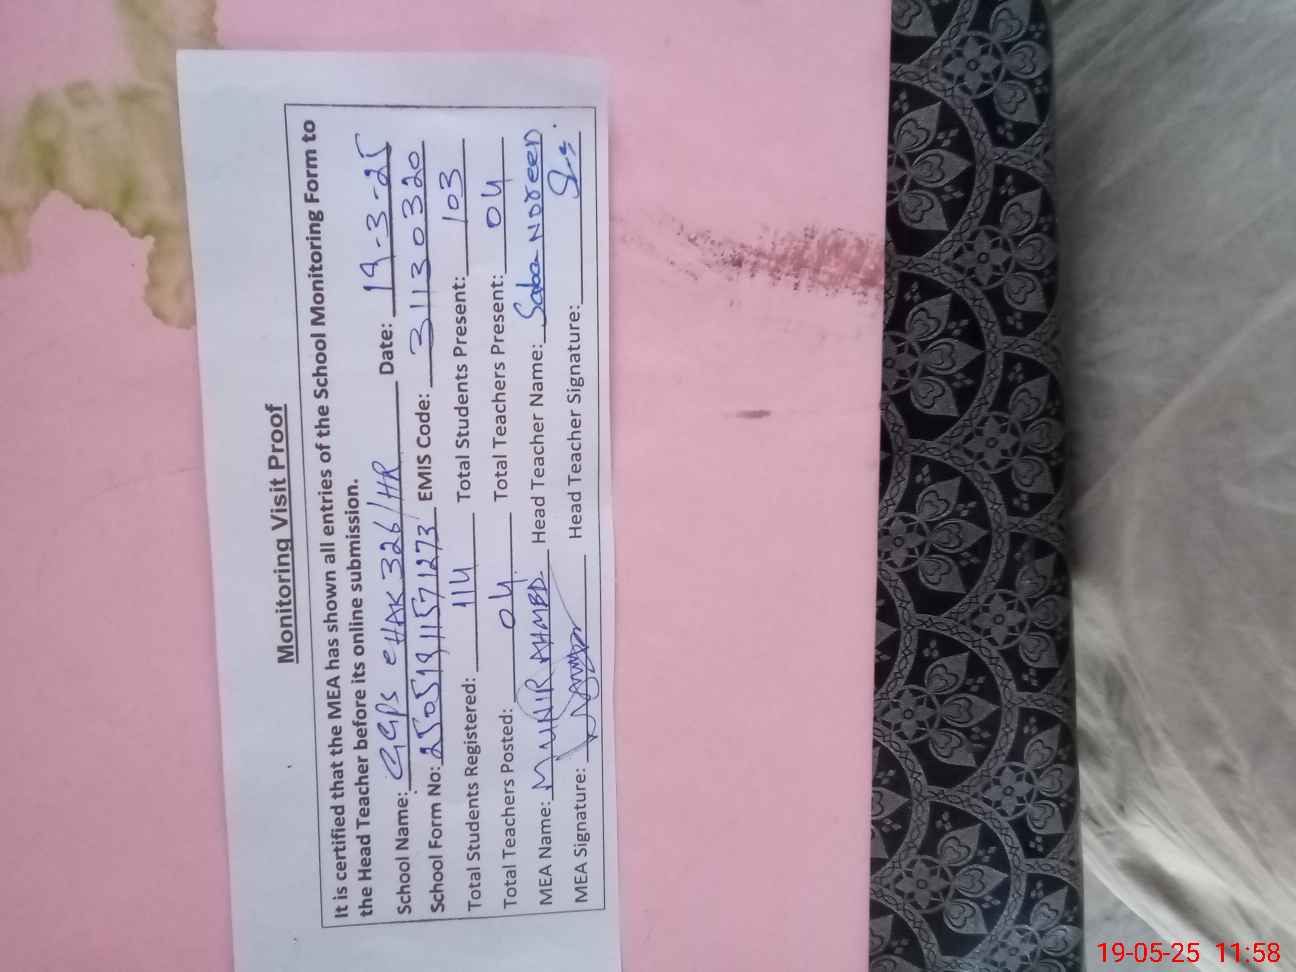 Monitoring Visit Proof
It is certified that the MEA has shown all entries of the School Monitoring Form to
the Head Teacher before its online submission.
School Name: GGPS CHAK 326/HR Date: 19-3-25
School Form No: 25051911571273 EMIS Code: 31130320
Total Students Registered: 114 Total Students Present: 103
Total Teachers Posted: 04 Total Teachers Present: 04
MEA Name: MUNIR AHMED Head Teacher Name: Saba Noreen
MEA Signature: Head Teacher Signature:
19-05-25 11:58